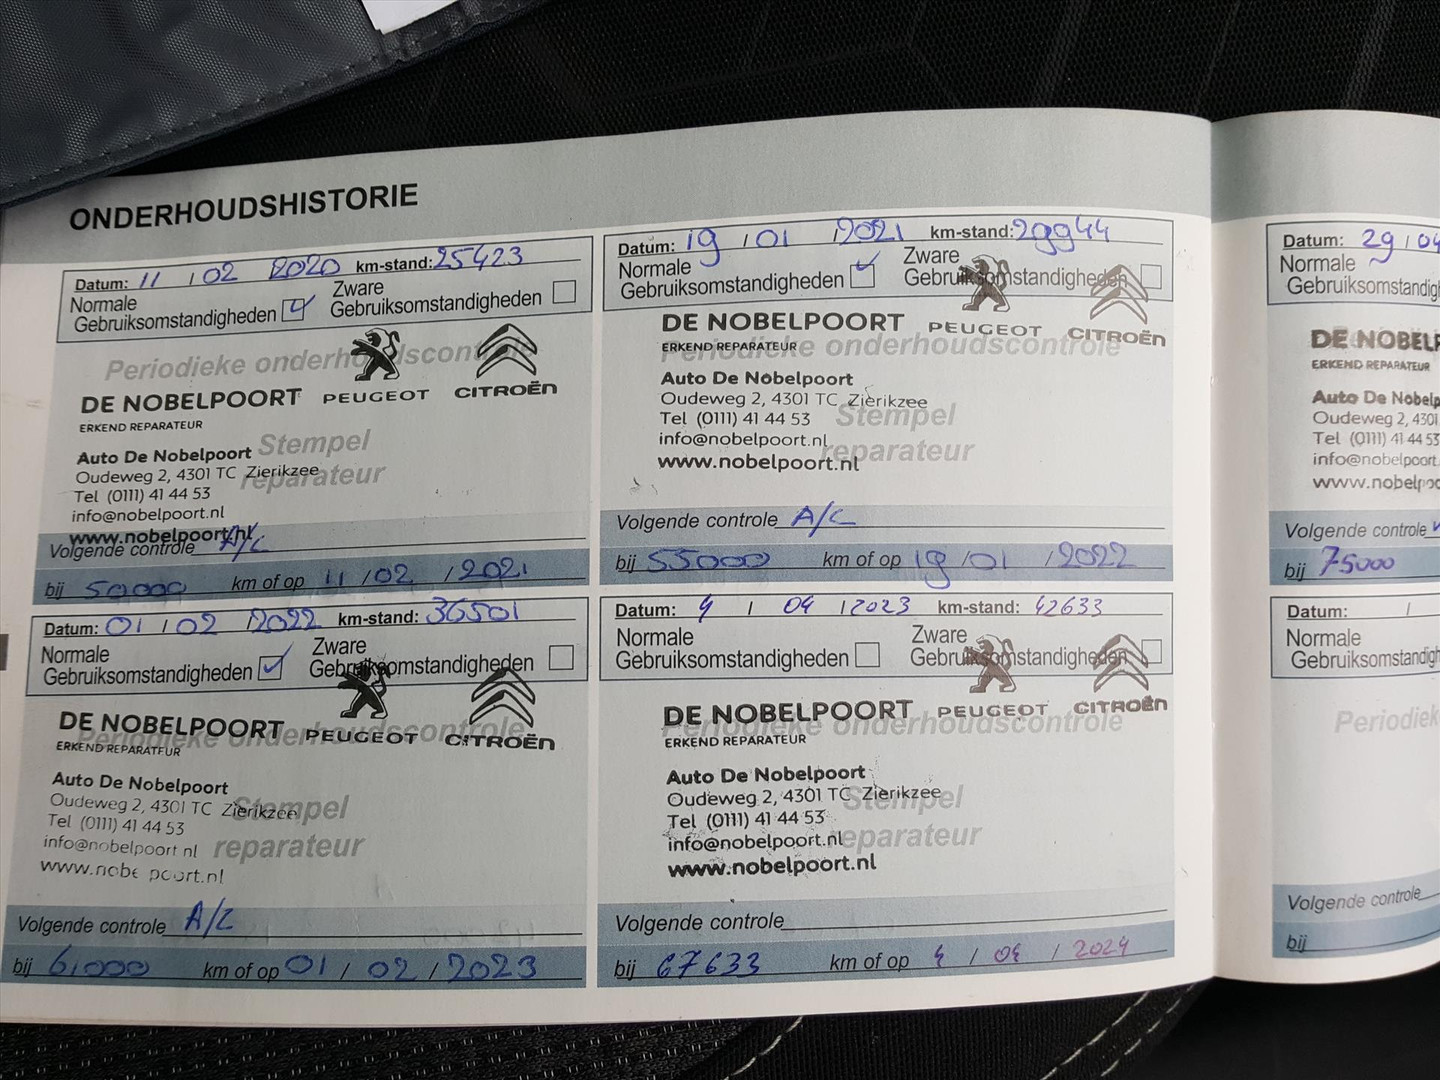 ONDERHOUDSHISTORIE
Datum: 11 / 02 / 2020 km-stand: 25423
Normale Gebruiksomstandigheden
Zware Gebruiksomstandigheden
Periodieke onderhoudscontrole
DE NOBELPOORT PEUGEOT CITROËN
ERKEND REPARATEUR
Stempel
Auto De Nobelpoort
Oudeweg 2, 4301 TC Zierikzee
reparateur
Tel (0111) 41 44 53
info@nobelpoort.nl
www.nobelpoort.nl
Volgende controle A/C
bij 50000 km of op 11 / 02 / 2021
Datum: 19 / 01 / 2021 km-stand: 29944
Normale Gebruiksomstandigheden
Zware Gebruiksomstandigheden
DE NOBELPOORT PEUGEOT CITROËN
ERKEND REPARATEUR
Periodieke onderhoudscontrole
Auto De Nobelpoort
Oudeweg 2, 4301 TC Zierikzee
Stempel
Tel (0111) 41 44 53
info@nobelpoort.nl
reparateur
www.nobelpoort.nl
Volgende controle A/C
bij 55000 km of op 19 / 01 / 2022
Datum: 01 / 02 / 2022 km-stand: 36501
Normale Gebruiksomstandigheden
Zware Gebruiksomstandigheden
DE NOBELPOORT PEUGEOT CITROËN
Periodieke onderhoudscontrole
ERKEND REPARATEUR
Auto De Nobelpoort
Oudeweg 2, 4301 TC Zierikzee
Stempel
Tel (0111) 41 44 53
info@nobelpoort nl
reparateur
www.nobe poort.nl
Volgende controle A/C
bij 61000 km of op 01 / 02 / 2023
Datum: 4 / 04 / 2023 km-stand: 42633
Normale Gebruiksomstandigheden
Zware Gebruiksomstandigheden
DE NOBELPOORT PEUGEOT CITROËN
Periodieke onderhoudscontrole
ERKEND REPARATEUR
Auto De Nobelpoort
Oudeweg 2, 4301 TC Zierikzee
Stempel
Tel (0111) 41 44 53
info@nobelpoort.nl
reparateur
www.nobelpoort.nl
Volgende controle
bij 67633 km of op 4 / 04 / 2024
Datum: 29 / 04
Normale
Gebruiksomstandig
DE NOBELP
ERKEND REPARATEUR
Auto De Nobelp
Oudeweg 2, 4301
Tel (0111) 41 44 53
info@nobelpoort.
www.nobelpo
Volgende controle
bij 75000
Datum: /
Normale
Gebruiksomstandigh
Periodiek
Volgende controle
bij